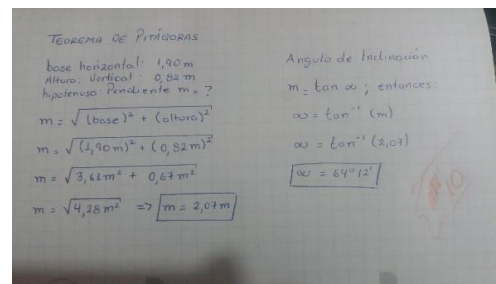 TEOREMA DE PITÁGORAS
base horizontal: 1,90 m
Altura: Vertical: 0,82 m
hipotenusa: Pendiente m = ?
m = √(base)² + (altura)²
m = √(1,90 m)² + (0,82 m)²
m = √3,61 m² + 0,67 m²
m = √4,28 m² => m = 2,07 m
Angulo de Inclinación
m = tan ∝ ; entonces:
∝ = tan⁻¹ (m)
∝ = tan⁻¹ (2,07)
∝ = 64° 12'
10